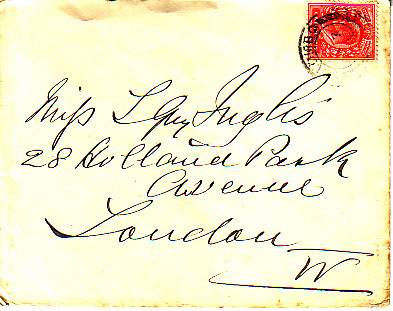 Miss L Guy Inglis
28 Holland Park
Avenue
London
W